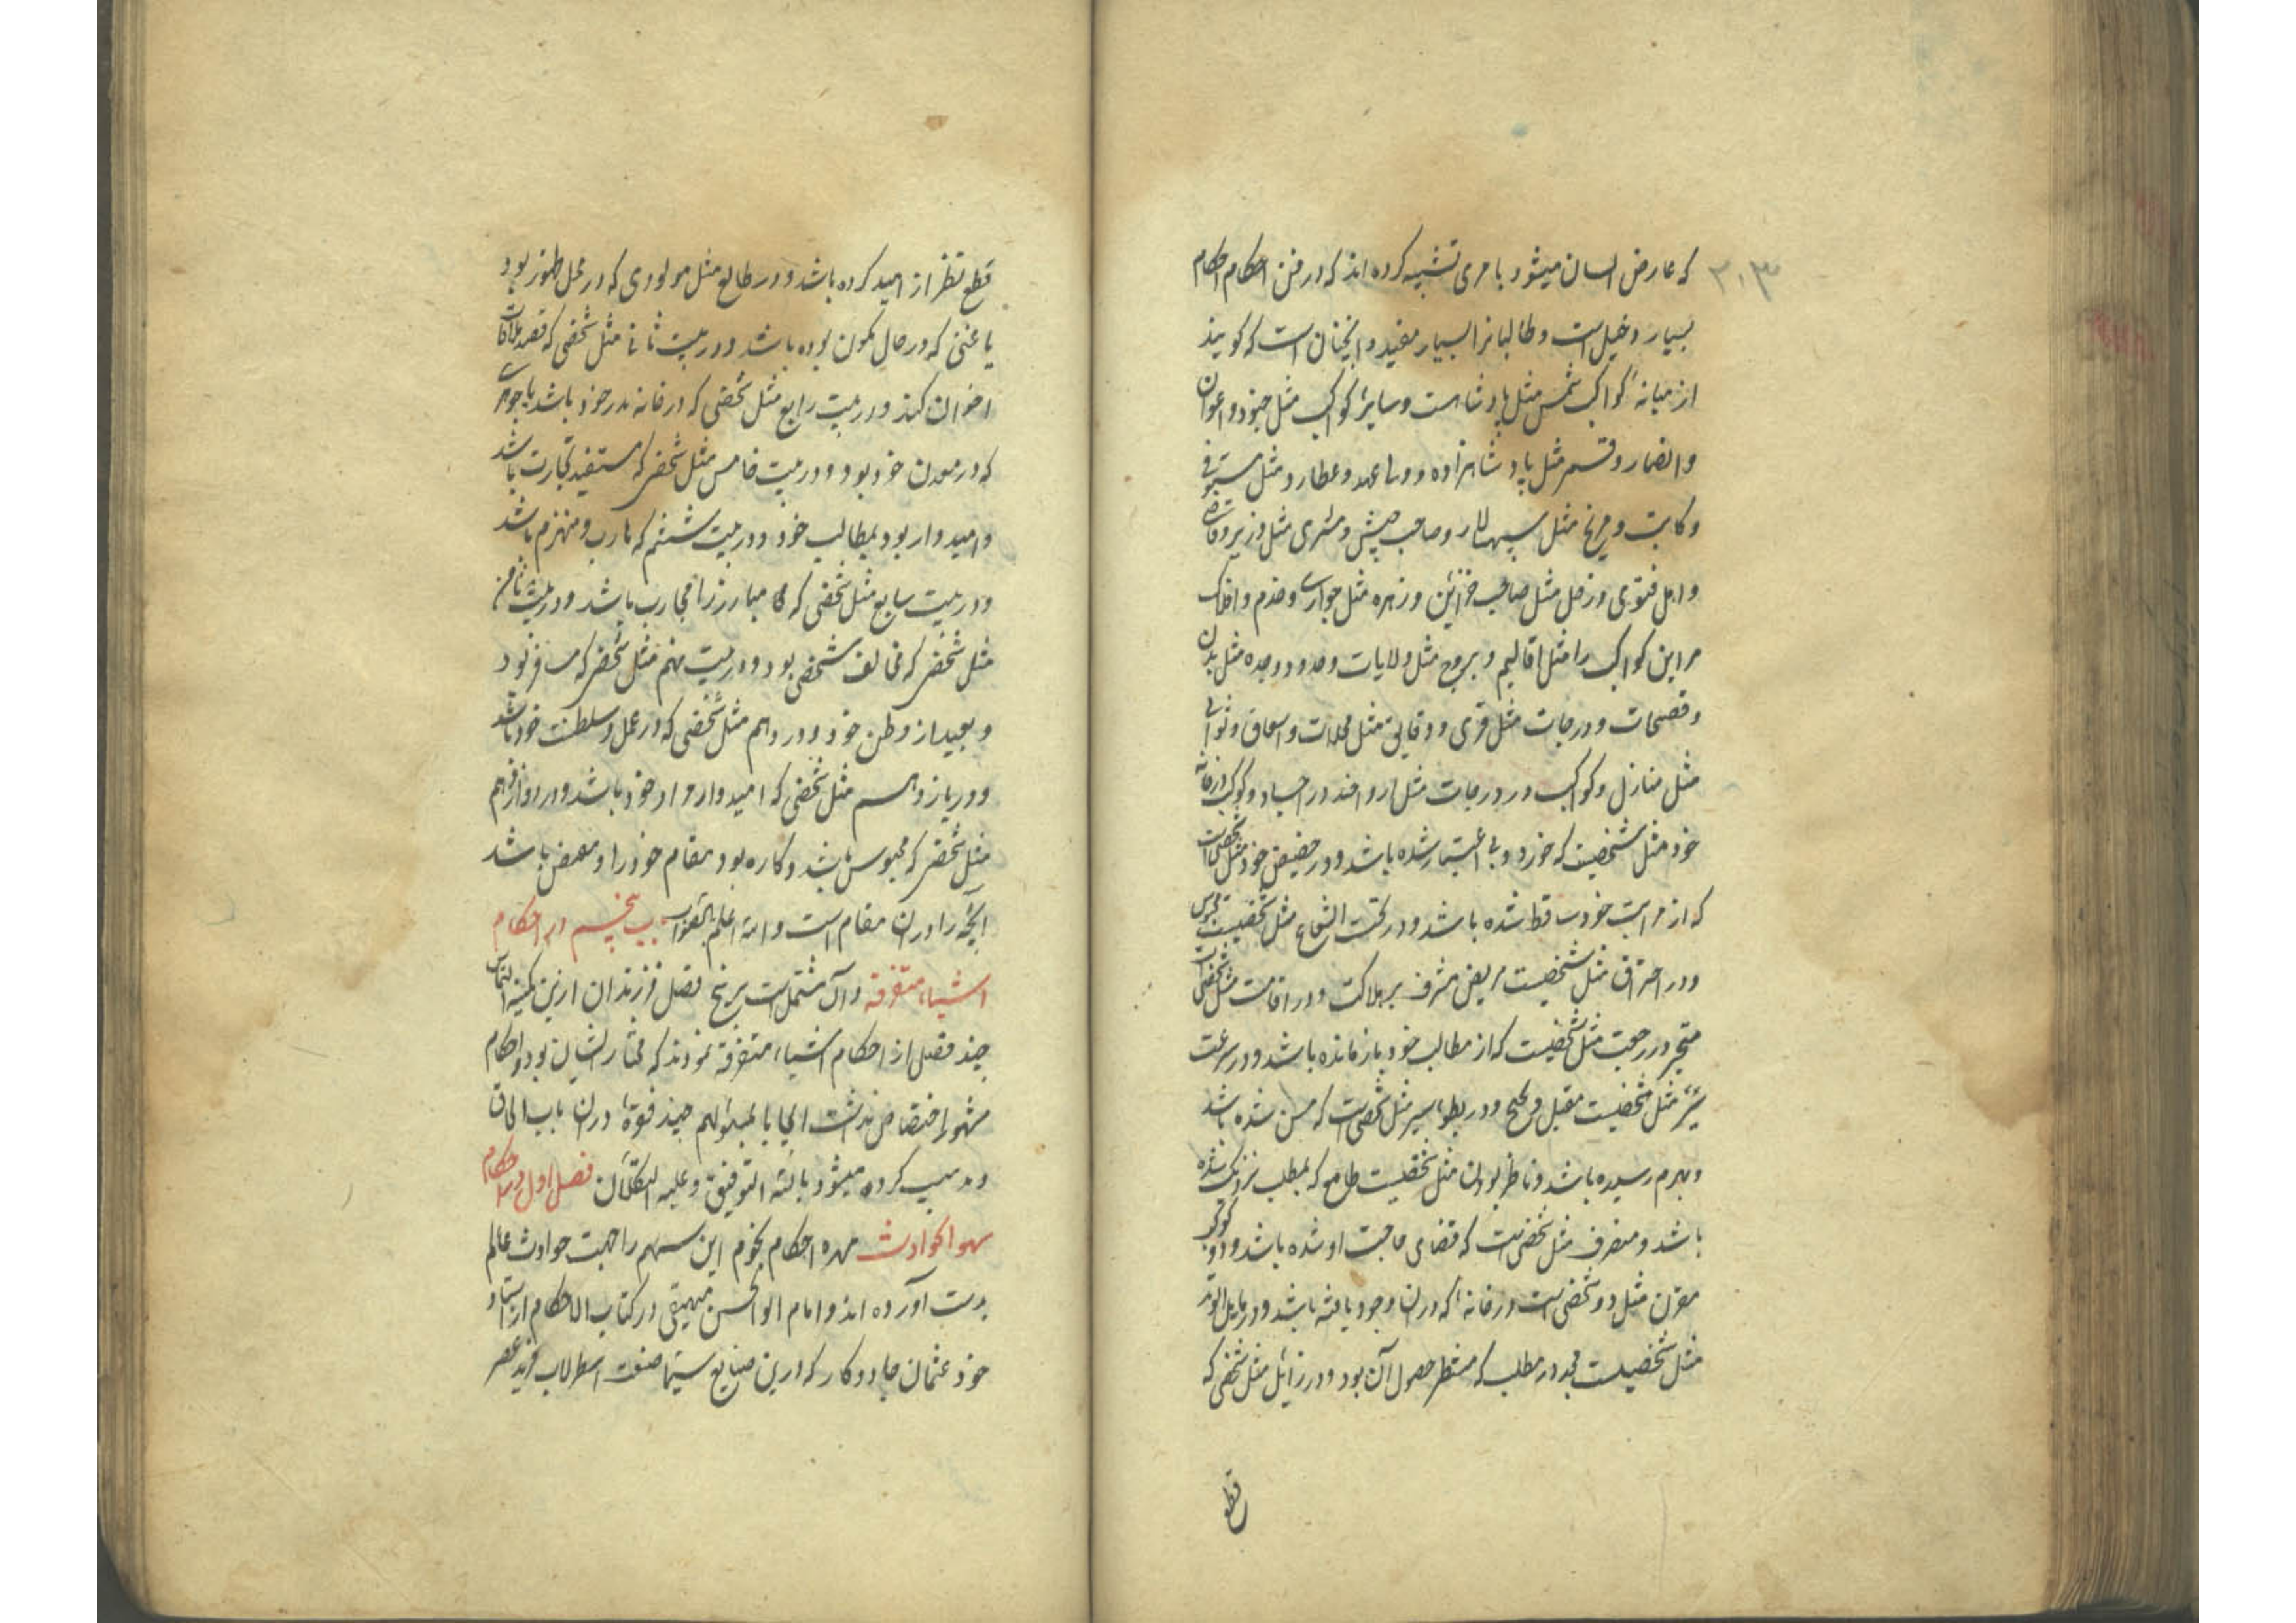 ۲۰۳
که عارض انسان میشود بامری تشبیه کرده اند که در فن احکام احکام
بسیار دخیل است و طالبانرا بسیار مفید و اینچنان است که کویند
از میانهٔ کواکب شمس مثل پادشاهست و سایر کواکب مثل جنود و اعوان
و انصار و قمر مثل پادشاهزاده و ولی عهد و عطارد مثل مستوفی
و کاتب و مریخ مثل سپهسالار و صاحب جیش و مشتری مثل وزیر و قاضی
و اهل فتوی و زحل مثل صاحب خزاین و زهره مثل جواری و خدم و افلاک
مر این کواکب را مثل اقالیم و بروج مثل ولایات و حدود و وجوه مثل بلدان
و قصبات و درجات مثل قری و دقایق مثل محلات و اسواق و ثوانی
مثل منازل و کواکب در درجات مثل ارواحند در اجساد و کوکب در خانه
خود مثل شخصیت که خورد و بی اعتبار شده باشد و در حضیض خود مثل شخصیست
که از مراتب خود ساقط شده باشد و در تحت الشعاع مثل شخصیست محبوس
و در احتراق مثل شخصیست مریض مشرف بر هلاکت و در اقامت مثل شخصیست
متحیر و در رجعت مثل شخصیست که از مطالب خود بازمانده باشد و در سرعت
سیر مثل شخصیست مقبل و صحیح و در بطوء سیر مثل شخصیست که مسن شده باشد
و بهرم رسیده باشد و ناظر بودن مثل شخصیست طامع که بمطلب نزدیک شده
باشد و منصرف مثل شخصی است که قضای حاجت او شده باشد و دو کوکب
مقرن مثل دو شخصی است در خانهٔ که در ان وجود یافته باشد و در مایل الوتد
مثل شخصیست مجد در مطلب که منتظر حصول آن بود و در زائل مثل شخصی که
قطع
قطع نظر از امید کرده باشد و در طالع مثل مولودی که در محل ظهور بود
یا غنی که در حال کمون بوده باشد و در بیت ثانی مثل شخصی که قصد ملاقات
اخوان کند و در بیت رابع مثل شخصی که در خانه پدر خود باشد یا جوهری
که در معدن خود بود و در بیت خامس مثل شخصی که مستفید تجارت باشد
و امیدوار بود بمطالب خود و در بیت ششم که هارب و منهزم باشد
و در بیت سابع مثل شخصی که مبارز را محارب باشد و در بیت ثامن
مثل شخصی که مخالف شخصی بود و در بیت نهم مثل شخصی که مسافر بود
و بعید از وطن خود و در دهم مثل شخصی که در عمل و سلطنت خود باشد
و در یازدهم مثل شخصی که امیدوار مراد خود باشد و در دوازدهم
مثل شخصی که محبوس باشد و کاره بود مقام خود را و مبغض باشد
آنچه را در ان مقام است والله اعلم بالصواب باب پنجم در احکام
اشیاء متفرقه و آن مشتمل است بر پنج فصل فرزندان ازین کمینه التماس
چند فصل از احکام اشیاء متفرقه نمودند که مختار ایشان بود و احکام
مشهور اختصاص نداشت ایجابا لمسئولهم چند فقرهٔ در ان باب الحاق
و ترتیب کرده میشود بالله التوفیق و علیه التکلان فصل اول در احکام
سهم الحوادث مهره احکام نجوم این سهم را جهت حوادث عالم
بدست آورده اند و امام ابوالحسن بیهقی در کتاب الاحکام از استاد
خود عثمان جادوکار که در این صنایع سیما صنعت اسطرلاب فرید عصر